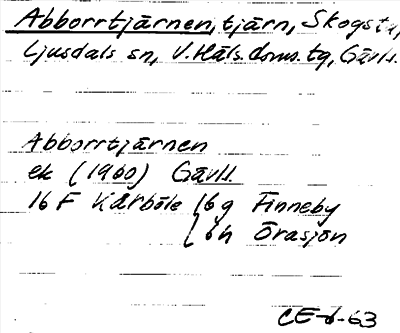 Abborrtjärnen, tjärn, Skogsta,
Ljusdals sn, V. Häls. doms. tg, Gävl.
Abborrtjärnen
ek (1960) Gävll.
16 F Kårböle 6g Finneby
6h Orasjön
CE-6-63